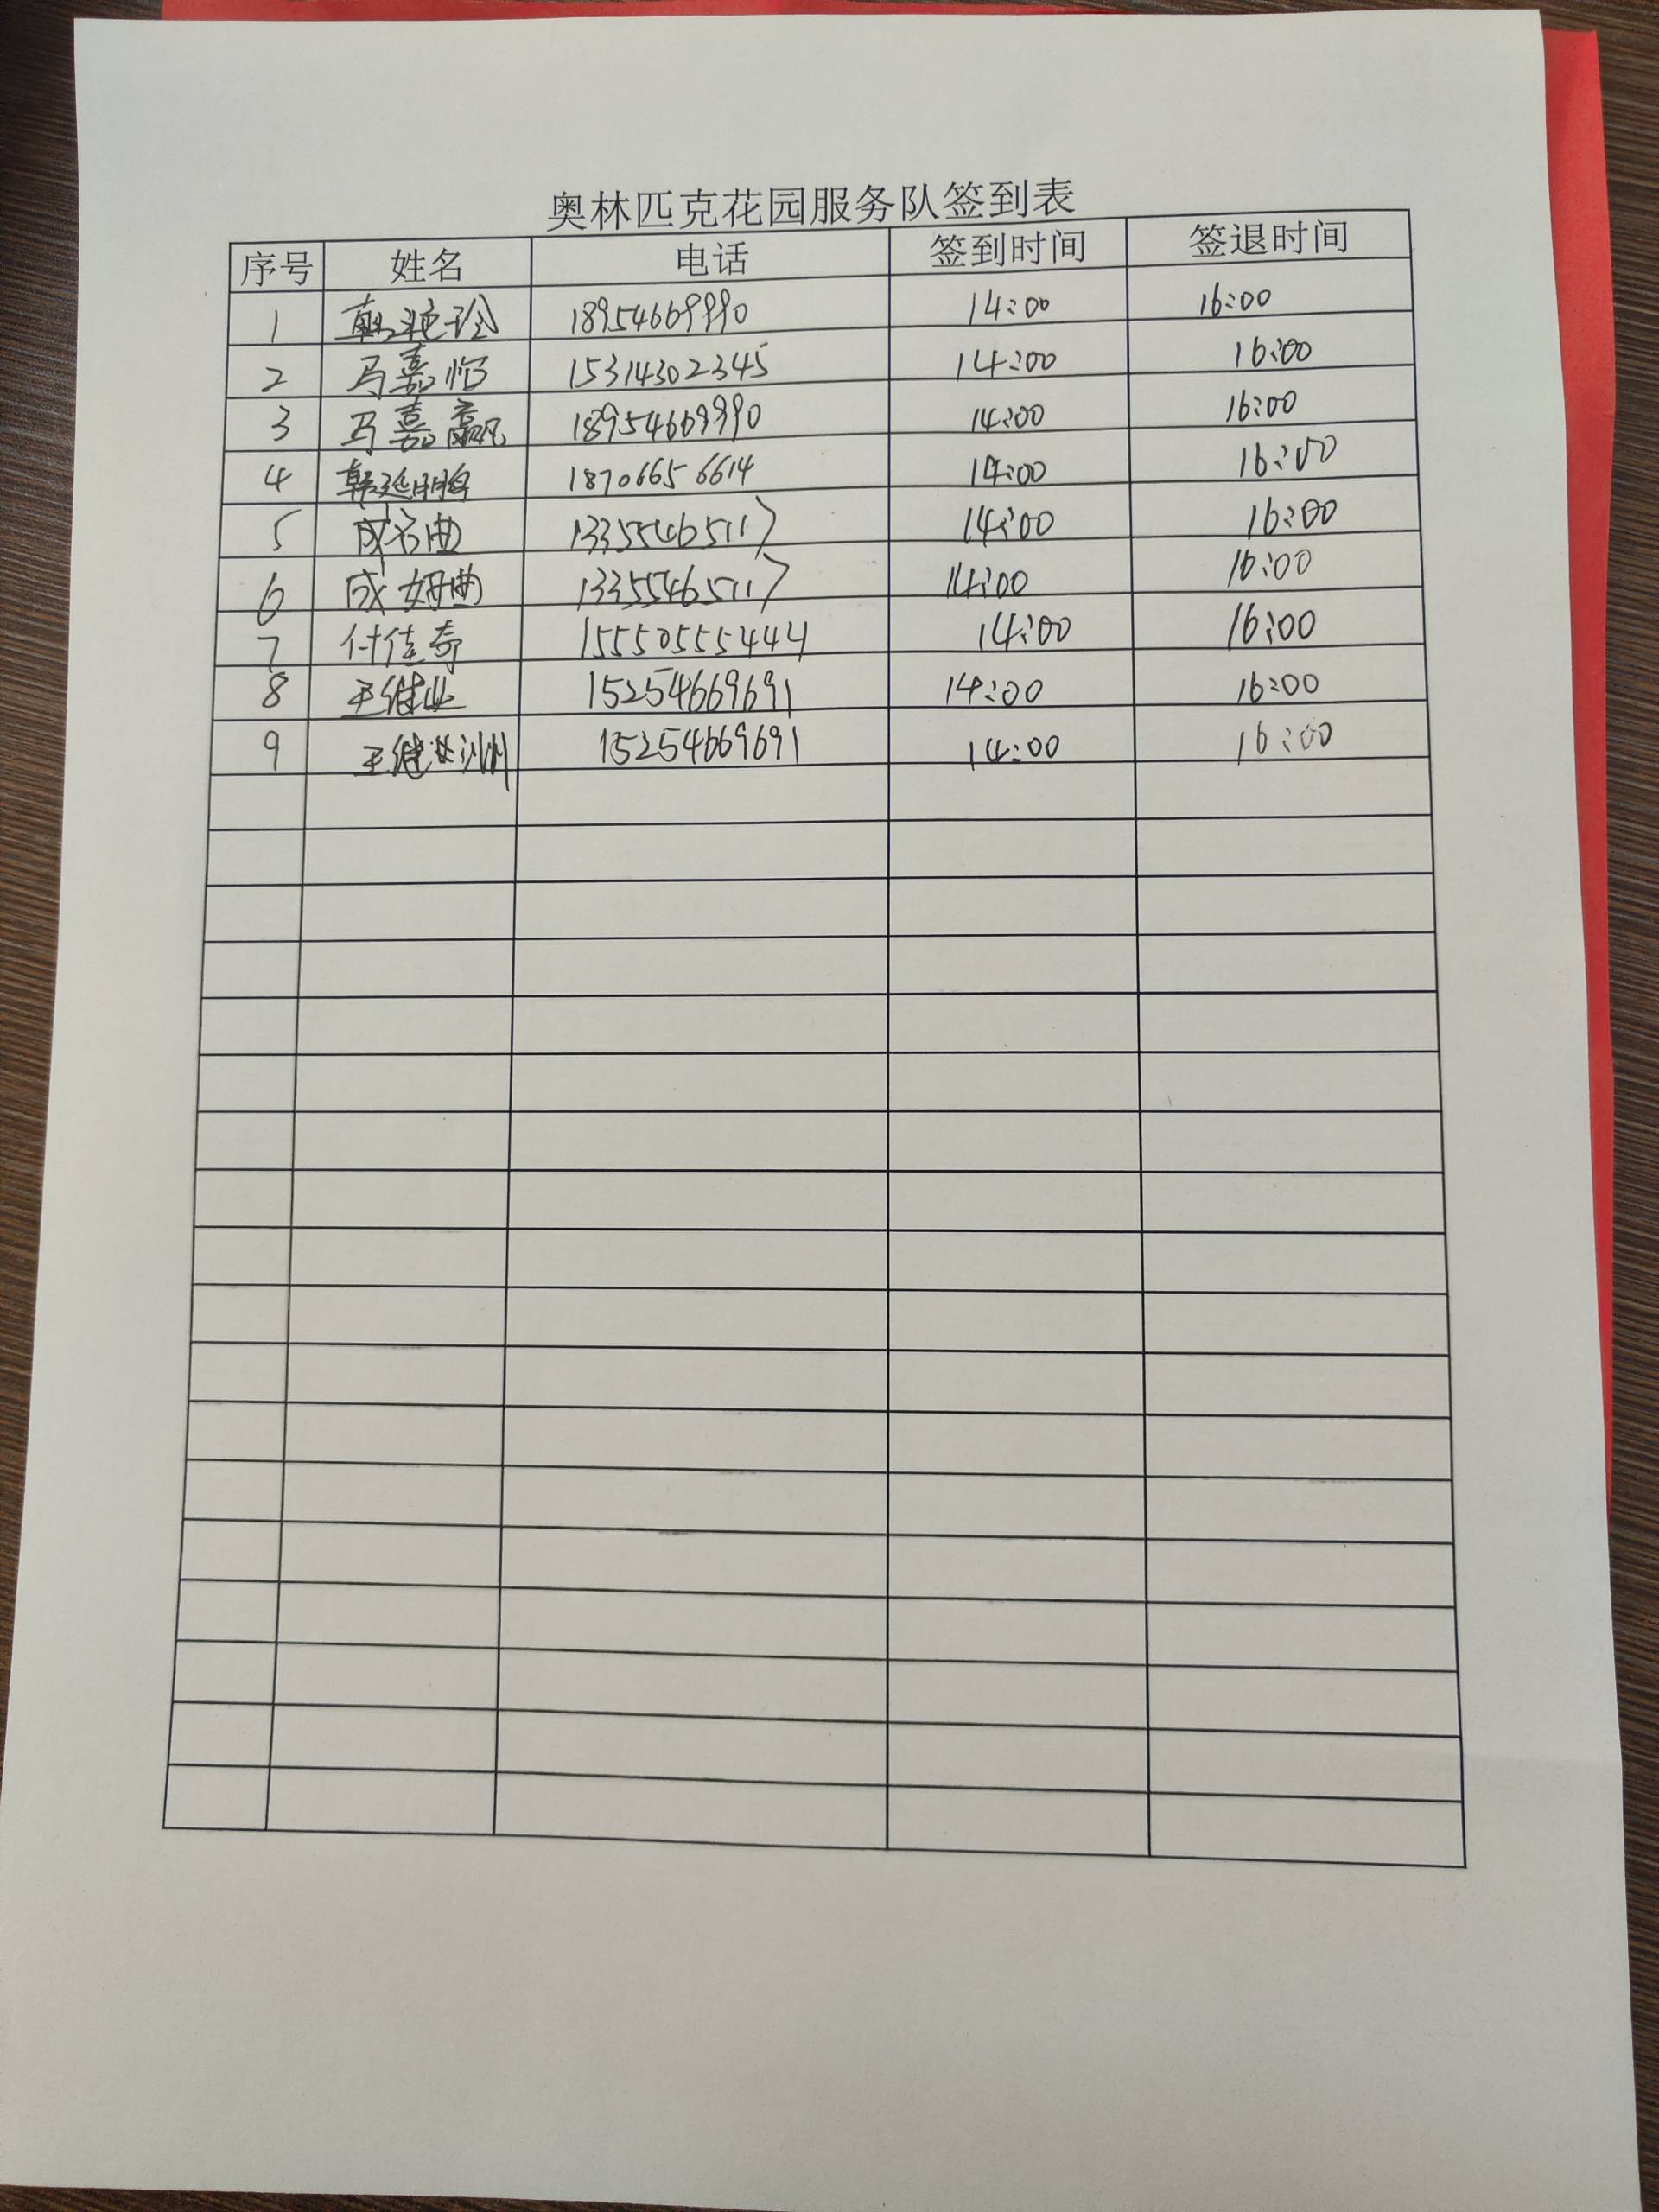 奥林匹克花园服务队签到表
序号 姓名 电话 签到时间 签退时间
1 韩艳玲 18954669990 14:00 16:00
2 马嘉 15314302345 14:00 16:00
3 马嘉赢 18954669990 14:00 16:00
4 韩延 18706656614 14:00 16:00
5 成名曲 13355465117 14:00 16:00
6 成妍曲 13355465117 14:00 16:00
7 付佳奇 15550555444 14:00 16:00
8 王继业 15254669691 14:00 16:00
9 王继 15254669691 14:00 16:00